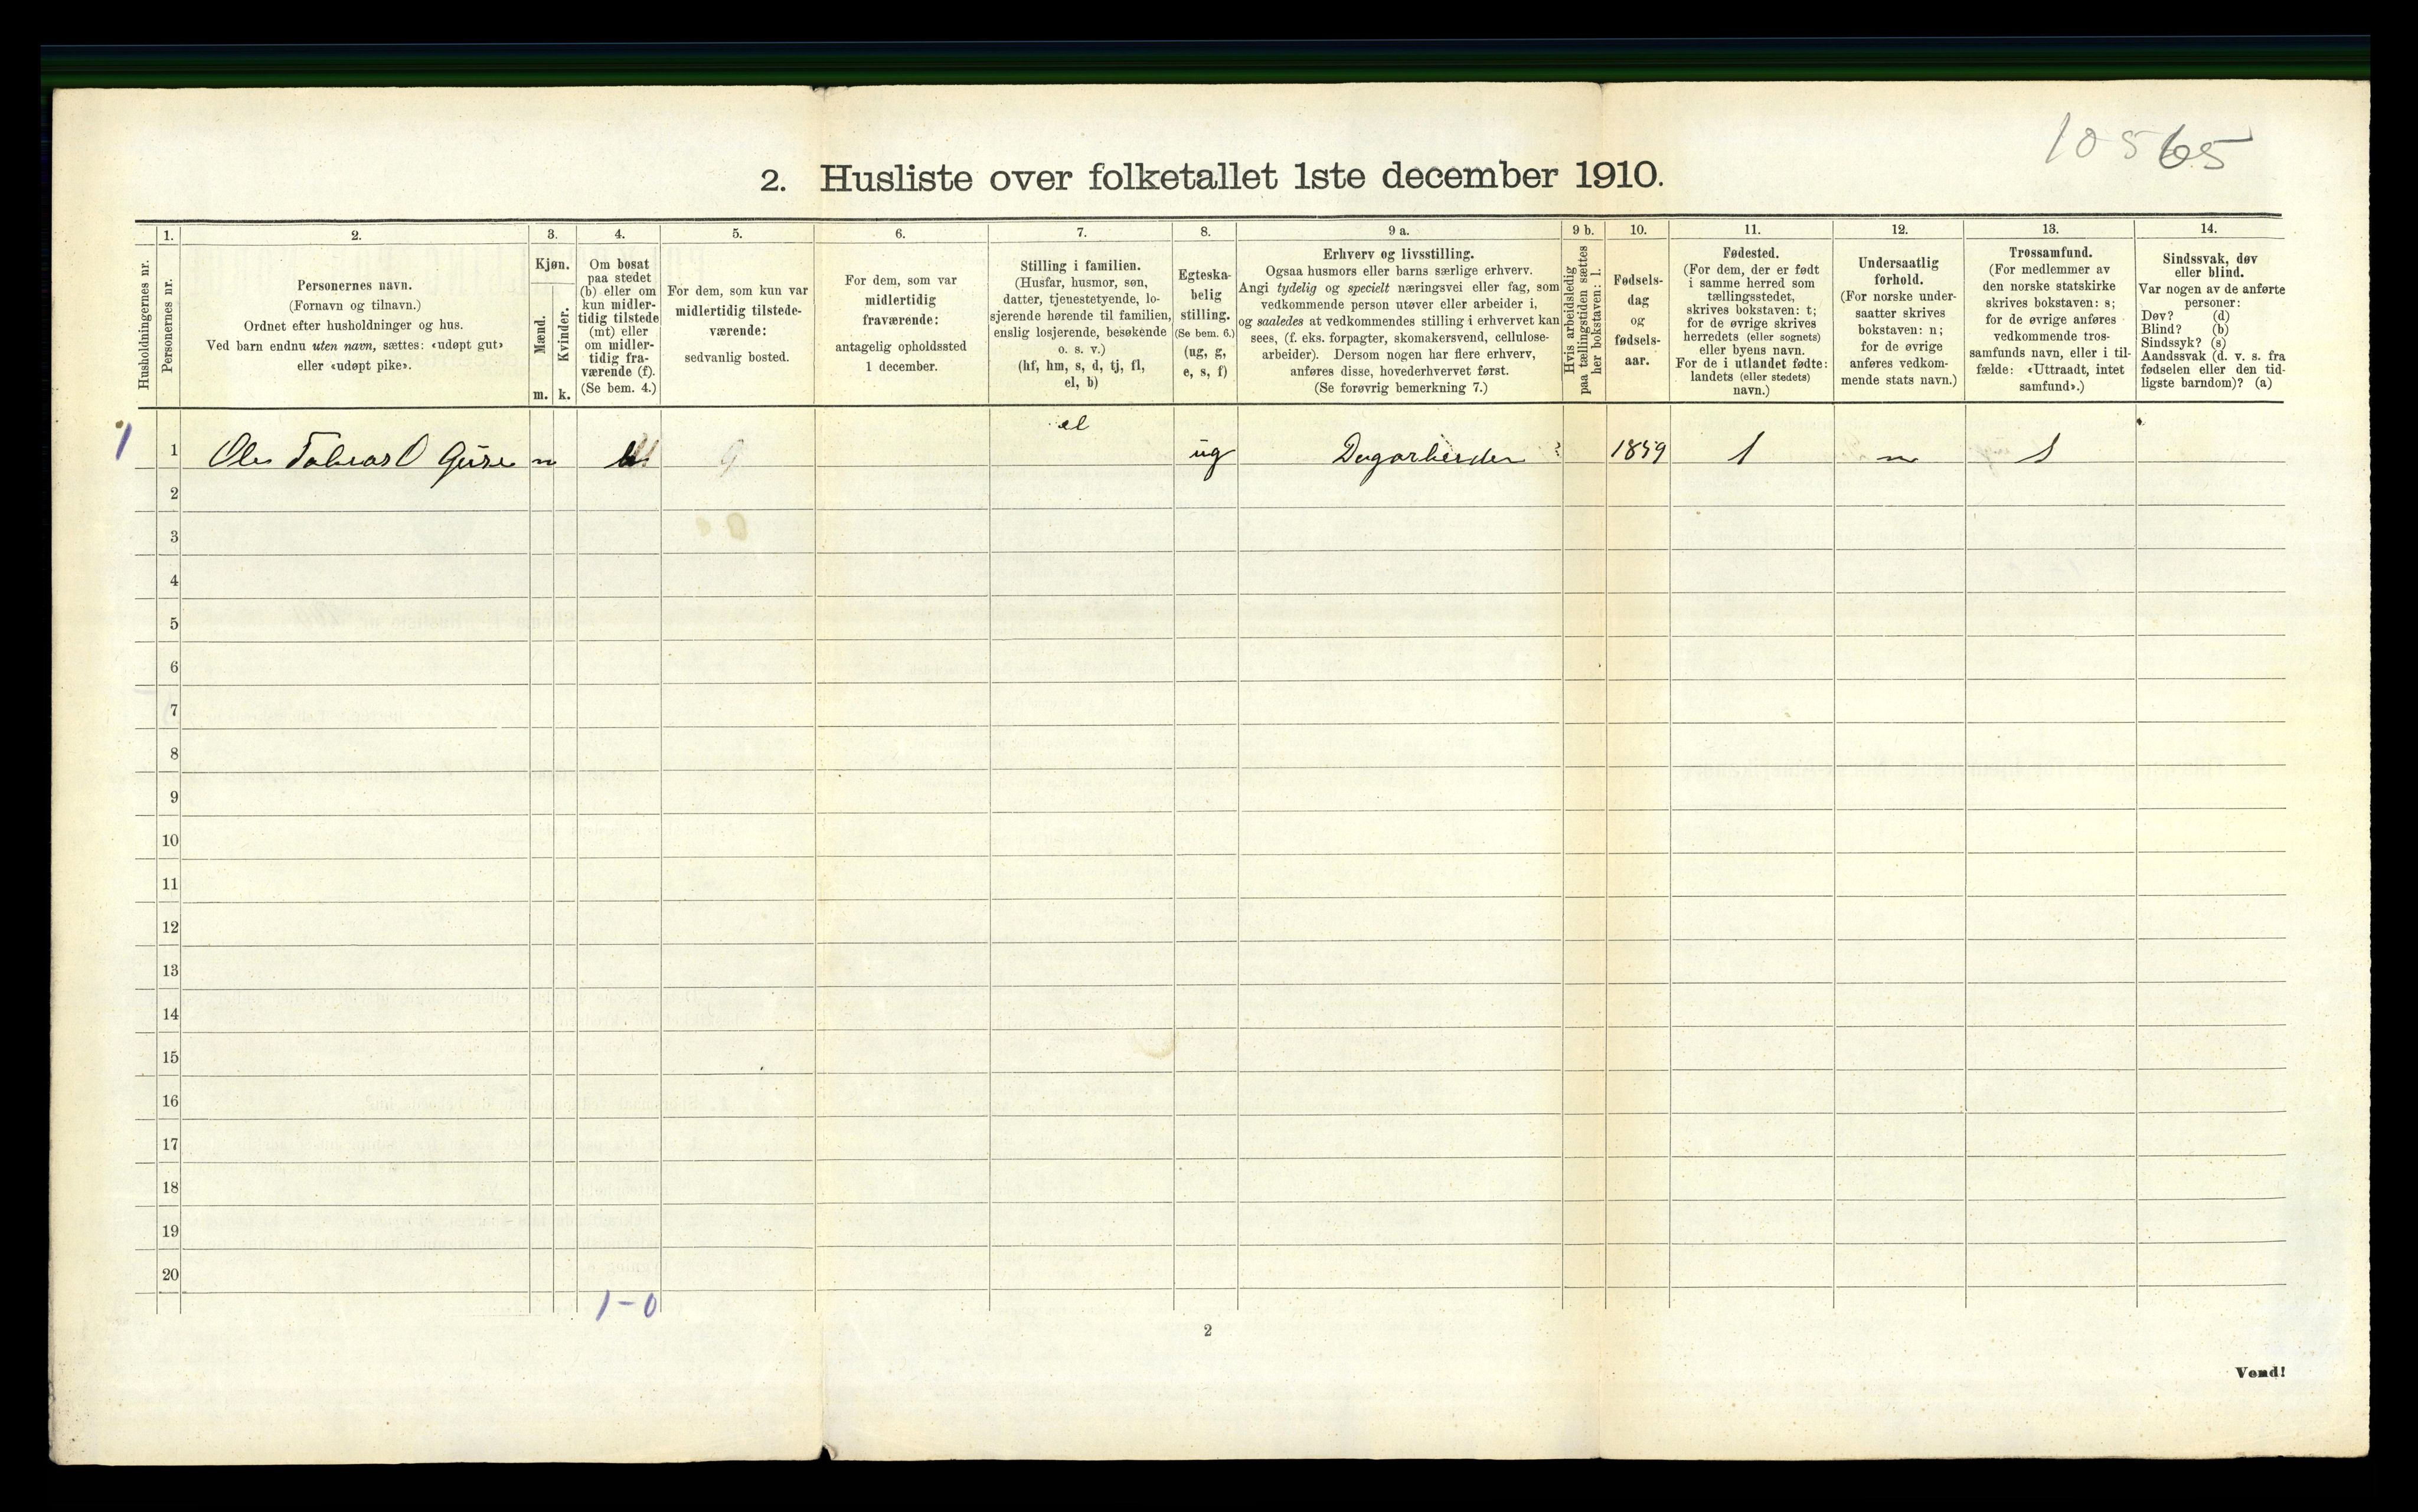 10565
2. Husliste over folketallet 1ste december 1910.
1. 2. 3. 4. 5. 6. 7. 8. 9 a. 9 b. 10. 11. 12. 13. 14.
Husholdningernes nr.
Personernes nr.
Personernes navn.
(Fornavn og tilnavn.)
Ordnet efter husholdninger og hus.
Ved barn endnu uten navn, sættes: «udøpt gut»
eller «udøpt pike».
Kjøn.
Mænd.
Kvinder.
m. k.
Om bosat
paa stedet
(b) eller om
kun midler-
tidig tilstede
(mt) eller
om midler-
tidig fra-
værende (f).
(Se bem. 4.)
For dem, som kun var
midlertidig tilstede-
værende:
sedvanlig bosted.
For dem, som var
midlertidig
fraværende:
antagelig opholdssted
1 december.
Stilling i familien.
(Husfar, husmor, søn,
datter, tjenestetyende, lo-
sjerende hørende til familien,
enslig losjerende, besøkende
o. s. v.)
(hf, hm, s, d, tj, fl,
el, b)
Egteska-
belig
stilling.
(Se bem. 6.)
(ug, g,
e, s, f)
Erhverv og livsstilling.
Ogsaa husmors eller barns særlige erhverv.
Angi tydelig og specielt næringsvei eller fag, som
vedkommende person utøver eller arbeider i,
og saaledes at vedkommendes stilling i erhvervet kan
sees, (f. eks. forpagter, skomakersvend, cellulose-
arbeider). Dersom nogen har flere erhverv,
anføres disse, hovederhvervet først.
(Se forøvrig bemerkning 7.)
Hvis arbeidsledig
paa tællingstiden sættes
her bokstaven: l.
Fødsels-
dag
og
fødsels-
aar.
Fødested.
(For dem, der er født
i samme herred som
tællingsstedet,
skrives bokstaven: t;
for de øvrige skrives
herredets (eller sognets)
eller byens navn.
For de i utlandet fødte:
landets (eller stedets)
navn.)
Undersaatlig
forhold.
(For norske under-
saatter skrives
bokstaven: n;
for de øvrige
anføres vedkom-
mende stats navn.)
Trossamfund.
(For medlemmer av
den norske statskirke
skrives bokstaven: s;
for de øvrige anføres
vedkommende tros-
samfunds navn, eller i til-
fælde: «Uttraadt, intet
samfund».)
Sindssvak, døv
eller blind.
Var nogen av de anførte
personer:
Døv? (d)
Blind? (b)
Sindssyk? (s)
Aandssvak (d. v. s. fra
fødselen eller den tid-
ligste barndom)? (a)
el
1 1 Ole Tobias O m ug 1859 n s
2
3
4
5
6
7
8
9
10
11
12
13
14
15
16
17
18
19
20
1-0
2
Vend!